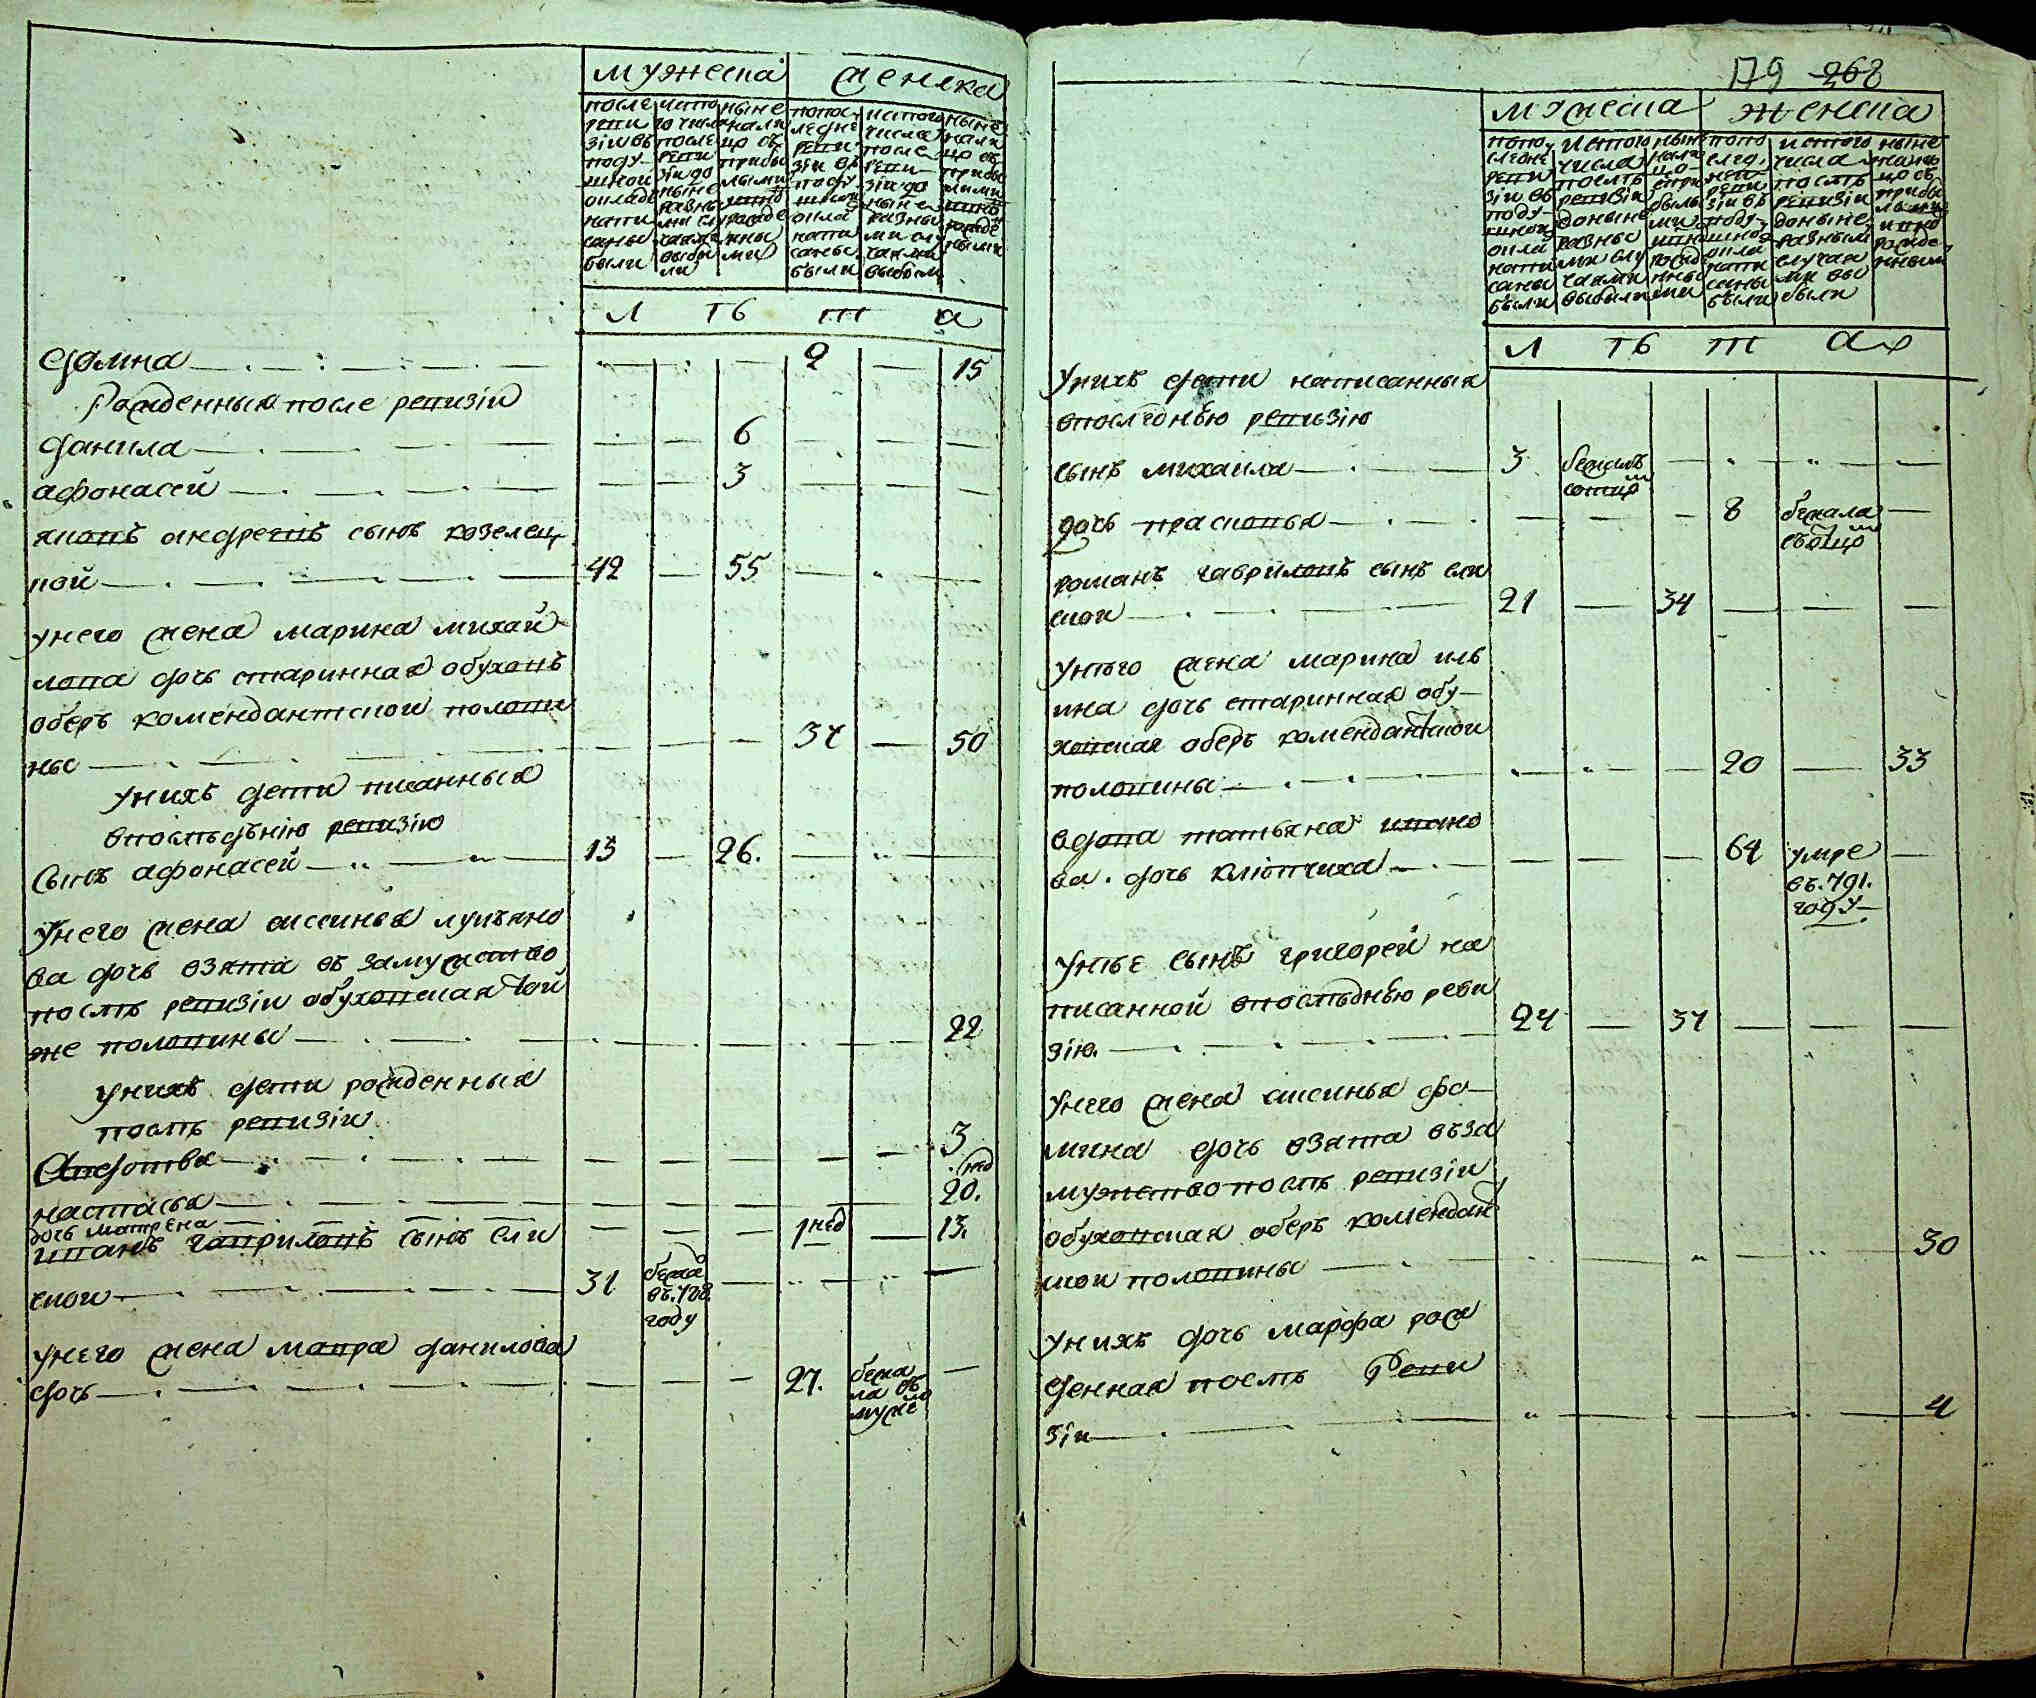 мужеска женска
после ревизіи въ подушной окладъ написаны были
ис того числа после ревизіи до ныне разными случаями выбыли
ныне налицо съ прибылыми и рожденными
по последне ревизіи въ подушной окладъ написаны были
ис того числа после ревизіи до ныне разными случаями выбыли
ныне налицо съ прибылыми и рожденными
л ѣ т а
домна 2 15
Рожденныя после ревизіи
данила 6
афонасей 3
яковъ андреевъ сынъ козелец
кой 42 55
унего жена марина михай
лова дочь старинная обуховъ
оберъ комендантской полови
ны 37 50
унихъ дети писанныя
впоследнію ревизію
Сынъ афонасей 13 26.
Унего жена аксинья лукьяно
ва дочь взята въ замужство
послѣ ревизіи обуховская той
же половины 22
унихъ дети рожденныя
послѣ ревизіи
Авдотья 3
настасья нед 20.
дочь матрена 1 нед 13.
иванъ гавриловъ сынъ ели
ской 31 бежа въ. 788. году
унего жена мавра данилова
дочь 27. бежала въ муже
179 268
мужеска женска
по последне ревизіи въ подушной окла написаны были
ис того числа послѣ ревизіи до ныне разными случаями выбыли
ныне налицо с прибылыми и рожденными
по последней ревизіи въ подушно окла написаны были
ис того числа послѣ ревизіи до ныне разным случаями выбыли
ныне налицо съ прибылыми и рожденными
л ѣ т ах
Унихъ дети написанныя
впоследнѣю ревизію
сынъ михаила 3 бежалъ сотцо м
дочь прасковья 8 бежала съотцо м
романъ гавриловъ сынъ ели
ской 21 34
унѣго жена марина иль
ина дочь старинная обу
ховская оберъ комендантской
половины 20 33
вдова татьяна ивано
ва. дочь клютчиха 64 умре въ. 791. году
унѣе сынъ григорей на
писанной впослѣднѣю реви
зію. 24 37
унего жена аксинья фо
мина дочь взята въза
мужетво послѣ ревизіи
обуховская оберъ комендан
ской половины 30
унихъ дочь марфа рож
денная послѣ Реви
зіи 4